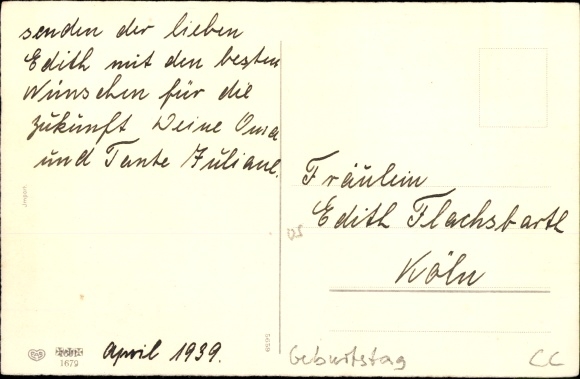 senden der lieben
Edith mit den besten
Wünschen für die
Zukunft Deine Oma
und Tante Juliane.
April 1939.
1679
Fräulein
Edith Flachsbartl
Köln
Geburtstag
CC